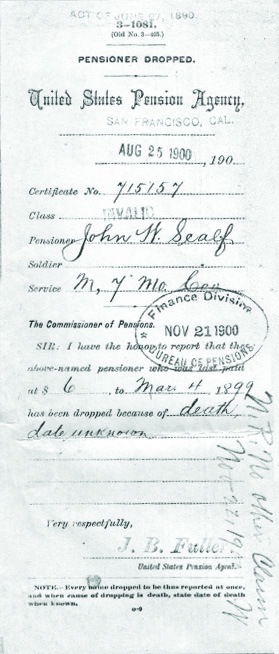 ACT OF JUNE 27, 1890.
3—1081.
(Old No. 3—405.)
PENSIONER DROPPED.
United States Pension Agency,
SAN FRANCISCO, CAL.
AUG 25 1900, 190
Certificate No. 715157
Class INVALID
Pensioner John W. Scalf
Soldier
Service M, 7 Mo. Cav
Finance Division
NOV 21 1900
BUREAU OF PENSIONS
The Commissioner of Pensions.
SIR: I have the honor to report that the
above-named pensioner who was last paid
at $ 6, to Mar. 4, 1899
has been dropped because of death,
date unknown
Very respectfully,
J. B. Fuller
United States Pension Agent.
NOTE.—Every name dropped to be thus reported at once,
and when cause of dropping is death, state date of death
when known.
No other Claim